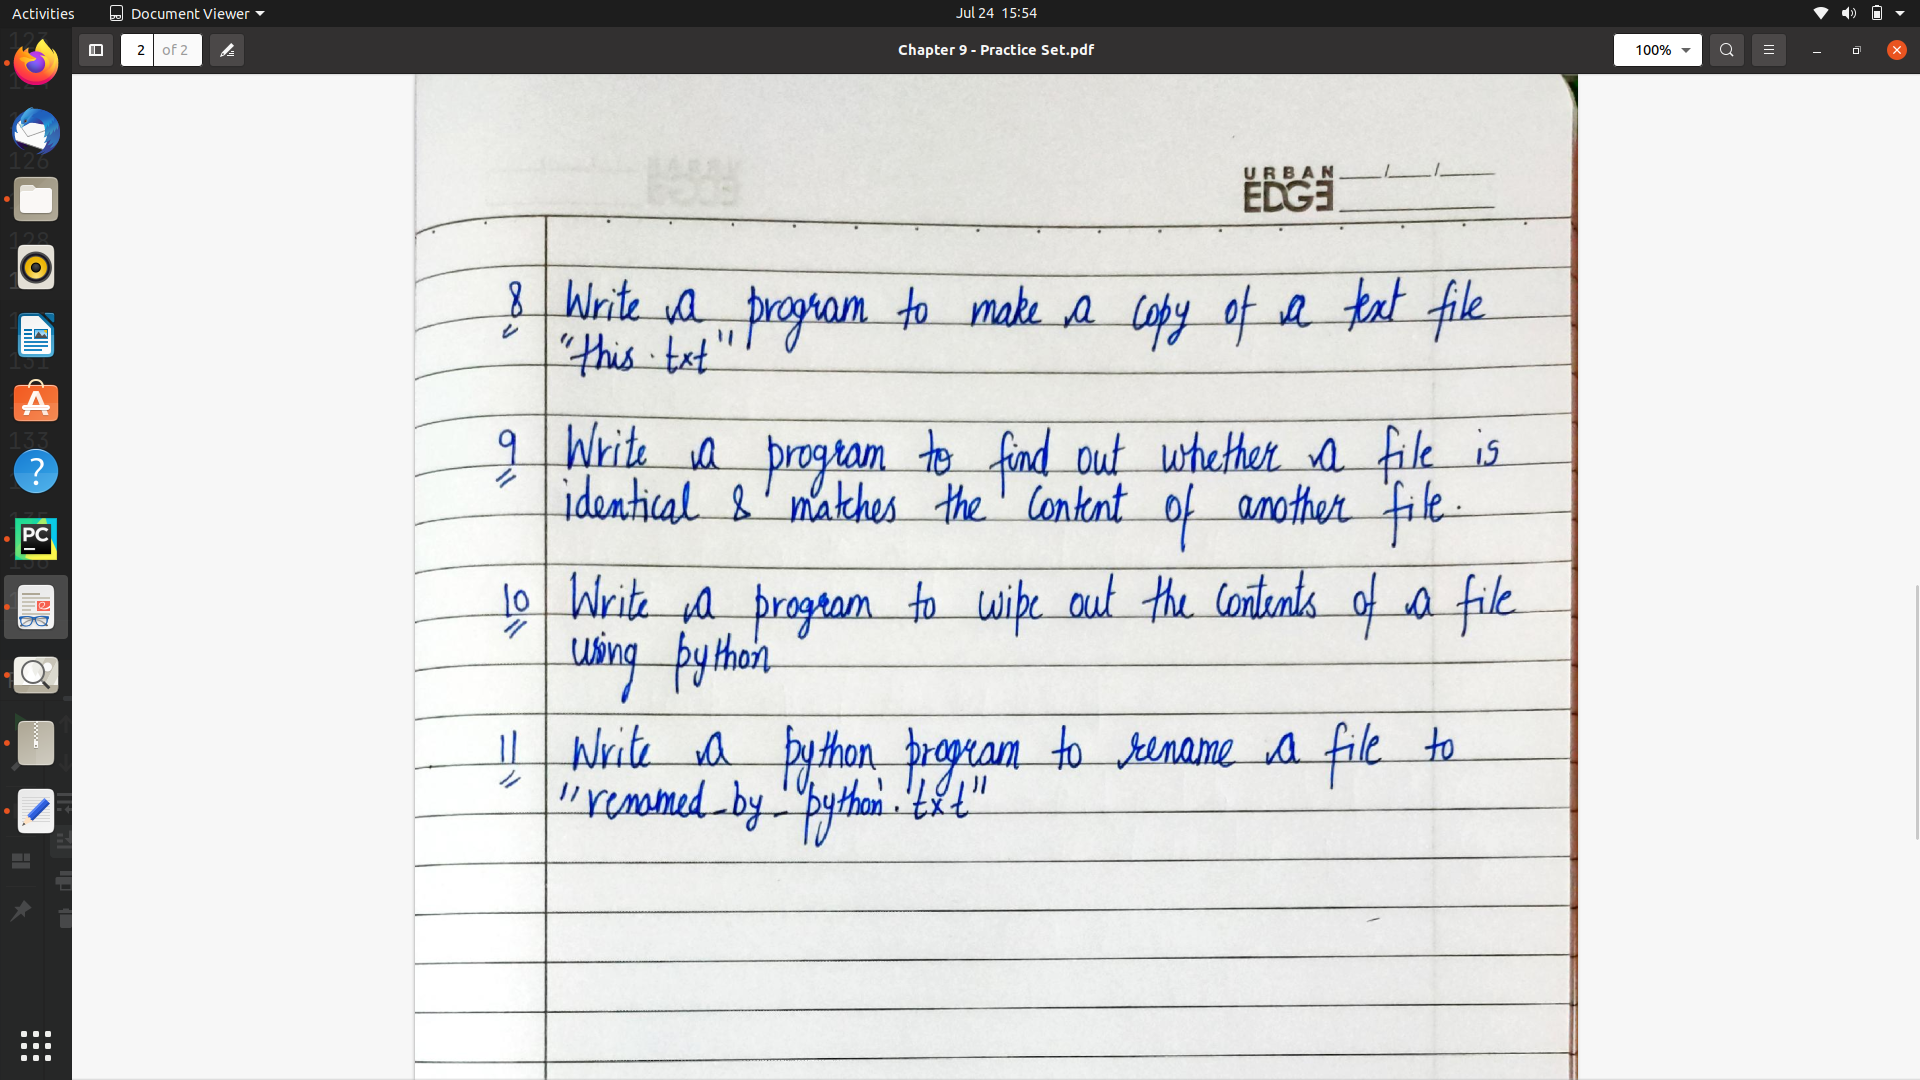 Activities
Document Viewer
Jul 24 15:54
2 of 2
Chapter 9 - Practice Set.pdf
100%
URBAN
EDGE
8 Write a program to make a copy of a text file
"this.txt"
9 Write a program to find out whether a file is
identical & matches the content of another file.
10 Write a program to wipe out the contents of a file
using python
11 Write a python program to rename a file to
"renamed_by_python.txt"
PC